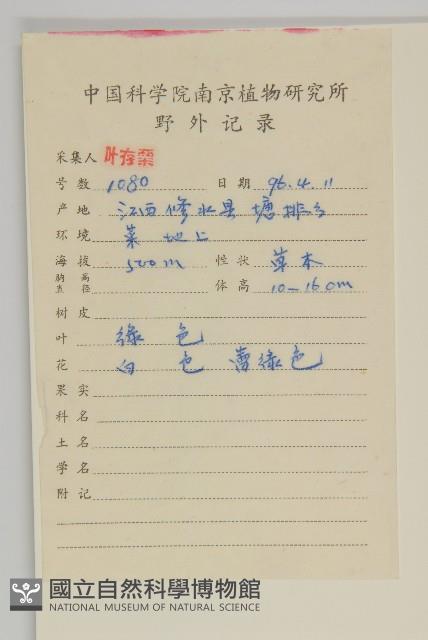 中国科学院南京植物研究所
野外记录
采集人 叶存粟
号数 1080 日期 96.4.11
产地 江西修水县 塘排乡
环境 菜地上
海拔 500m 性状 草本
胸高直径 体高 10—16cm
树皮
叶 绿色
花 白色 萼绿色
果实
科名
土名
学名
附记
國立自然科學博物館
NATIONAL MUSEUM OF NATURAL SCIENCE